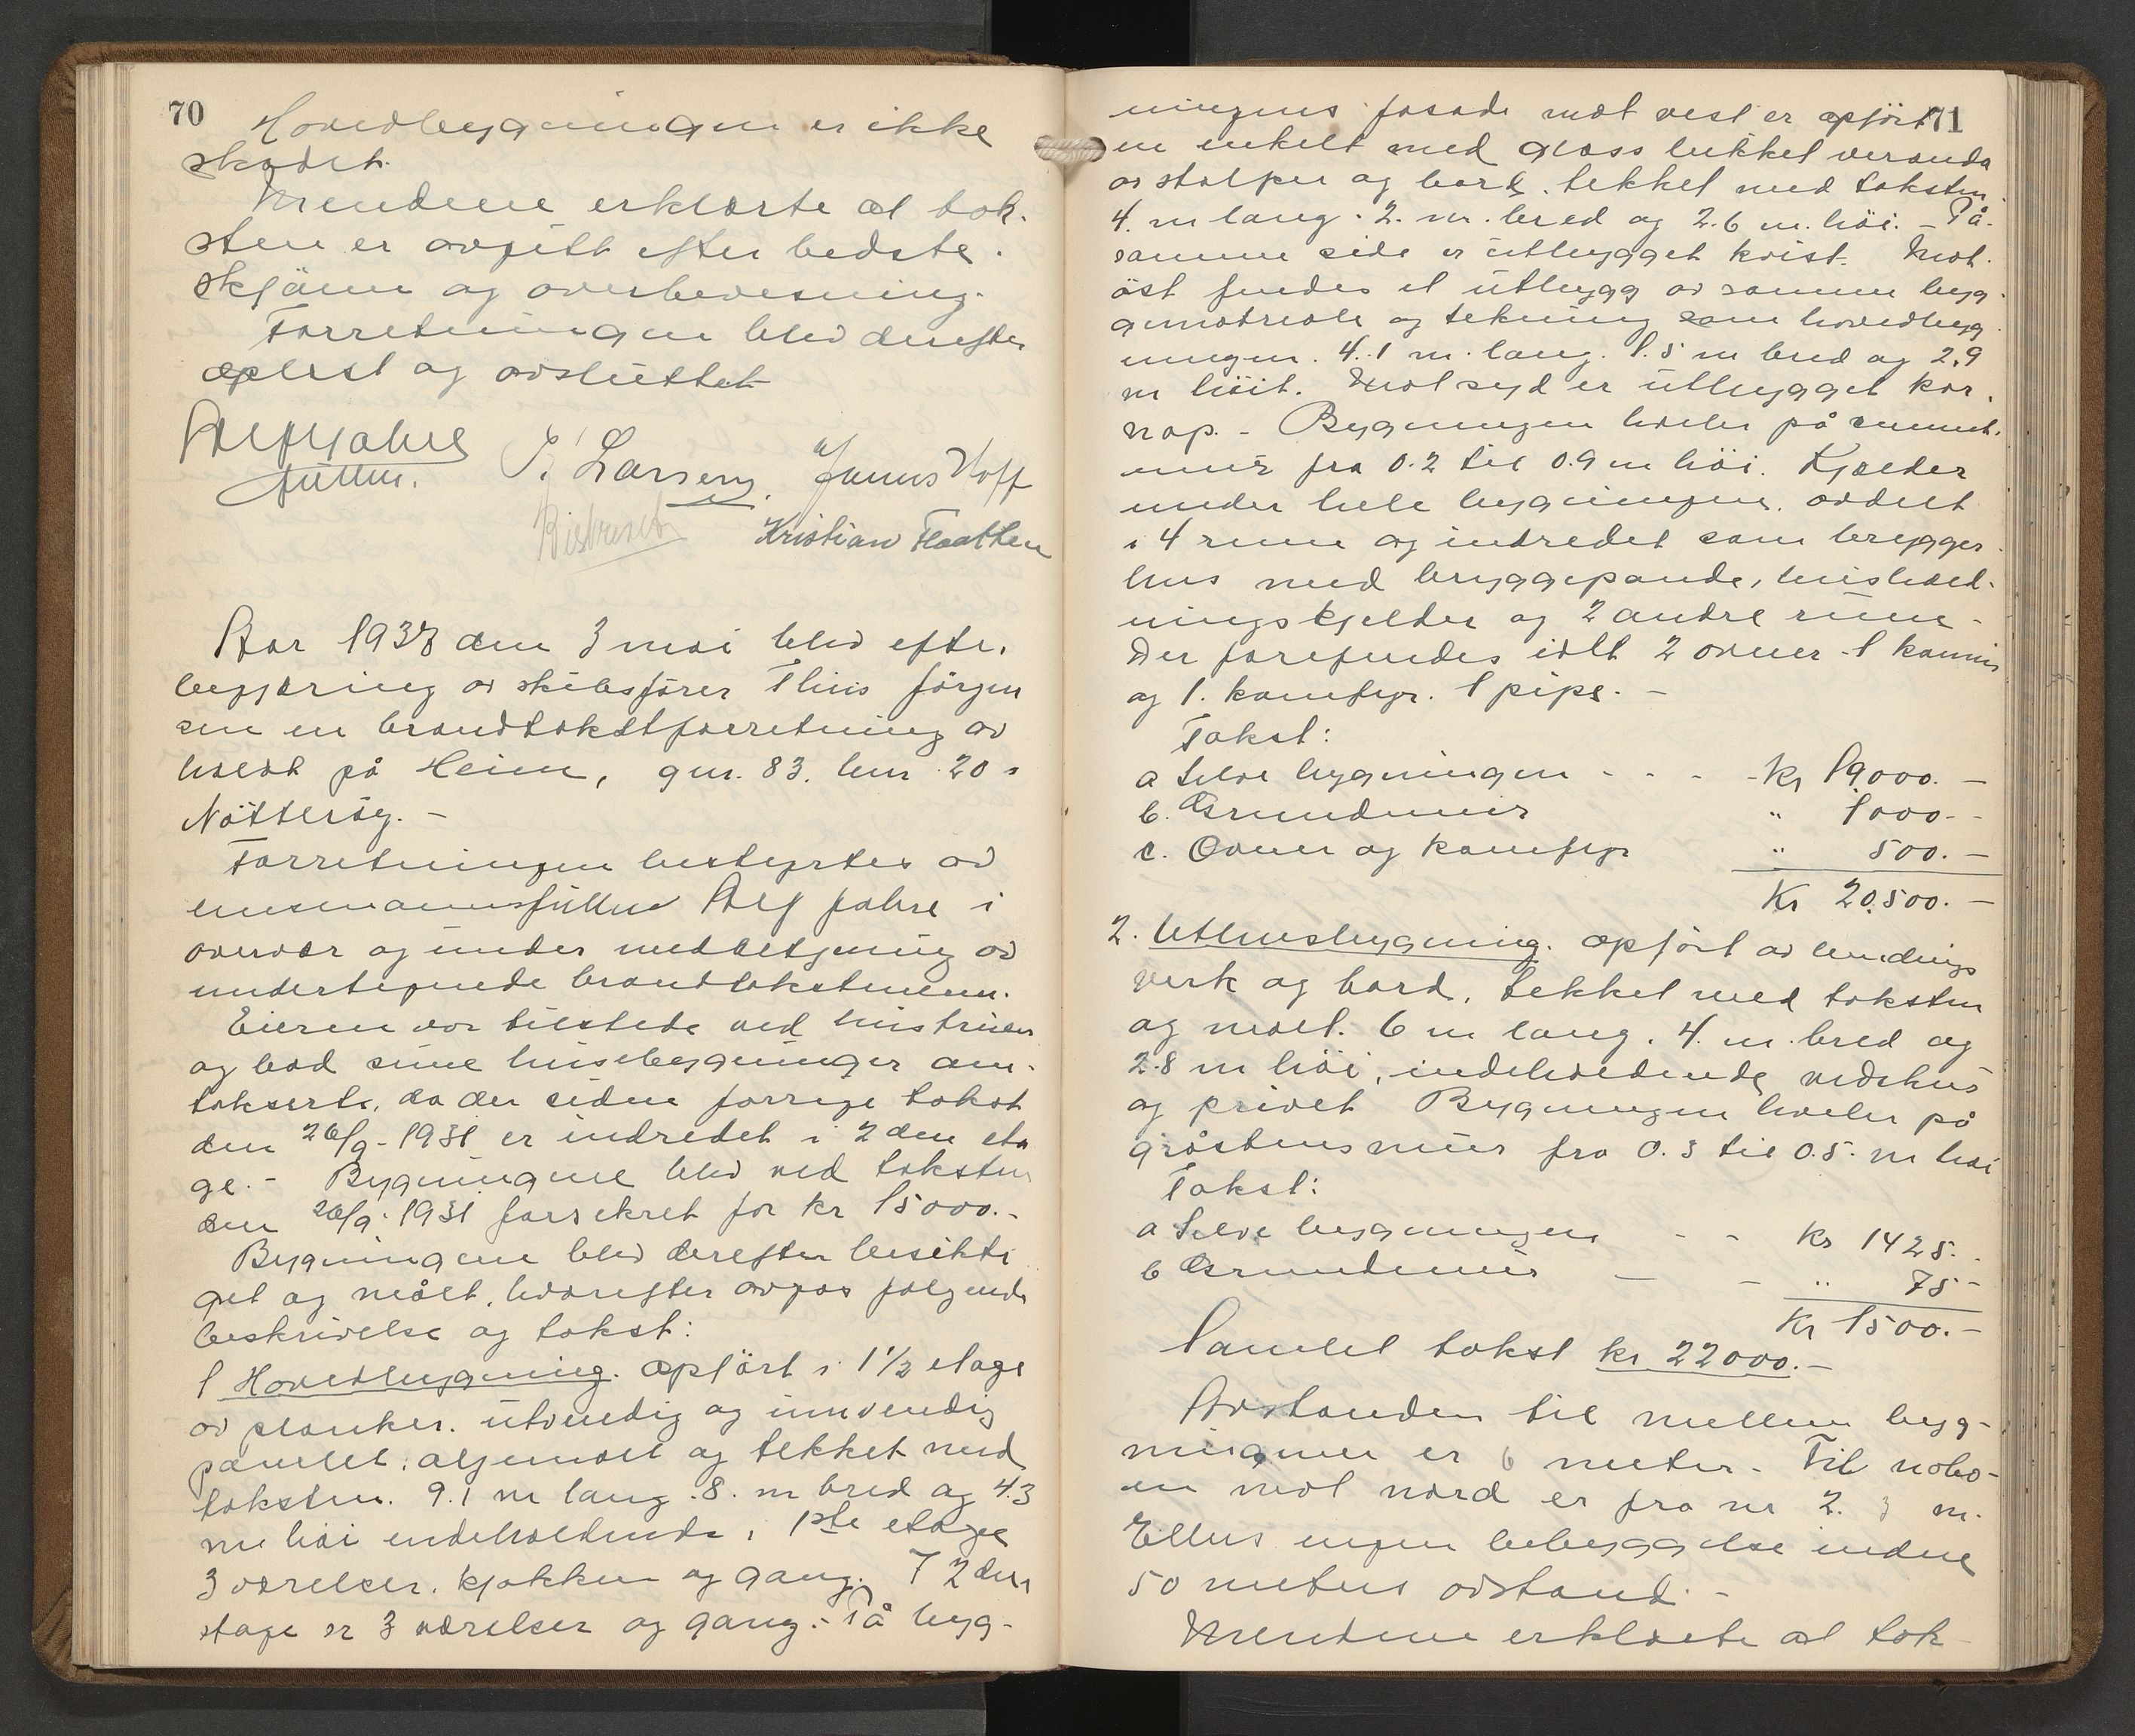 70
Hovedbygningen er ikke
skadet.
Mendene erklærte at tak-
sten er avgitt efter bedste
skjönn og overbevisning.
Forretningen blev derefter
oplest og avsluttet
Alf Jahre
fullm.
I. Larsen,
Junus Hoff
Kristian Flaatten
Aar 1938 den 3 mai blev efter
begjæring av skibsförer Thiis Jörgen
sen en brandtakstforretning av
holdt på Heim, gnr. 83. bnr 20 i
Nötteröy. -
Forretningen bestyrtes av
lensmannsfullm Alf Jahre i
overvær og under medbetjening av
undertegnede brandtakstmenn.
Eieren var tilstede ved hustruen
og bad sine husebygninger om-
takserte, da der siden forrige takst
den 26/9-1931 er indredet i 2den eta
ge. - Bygningene blev ved taksten
den 26/9-1931 forsikret for kr 15000.-
Bygningene blev derefter besikti
get og målt, hvorefter avgas følgende
beskrivelse og takst:
1 Hovedbygning. opfört i 1½ etage
av planker. utvendig og innvendig
panelet. oljemalt og tekket med
taksten. 9.1 m lang. 8. m bred og 4.3
m höi indeholdende i 1ste etage
3 værelser. kjøkken og gang. I 2den
etage er 3 værelser og gang. - På byg-
71
ningens fasade mot vest er opfört
en enkelt med glass lukket veranda
av stolper og bord. tekket med taksten
4. m lang. 2. m. bred og 2.6 m. höi. - På
samme side er utbygget kvist. Mot
öst findes et utbygg av samme byg
gematreale og tekning som hovedbyg
ningen. 4.1 m. lang. 1.5 m bred og 2,9
m höit. Mot syd er utbygget kar
nap. - Bygningen hviler på cement.
mur fra 0.2 til 0.9 m höi. Kjælder
under hele bygningen. avdelt
i 4 rum og indredet som brygger
hus med bryggepande, hushold-
ningskjelder og 2 andre rum -
Der forefindes ialt 2 ovner 1 kamin
og 1. komfyr. 1 pipe. -
Takst:
a Selve bygningen - - - - kr 19.000. -
b. Grundmur " 1000. -
c. Ovner og komfyr " 500. -
Kr 20.500. -
2. Uthusbygning. opfört av bindings
verk og bord, tekket med taksten
og malt. 6 m lang. 4. m. bred og
2.8 m höi, indeholdende vedshus
og privet Bygningen hviler på
gråstensmur fra 0.3 til 0.5. m höi
Takst:
a Selve bygningen - - kr 1425. -
b Grundmur - - " 75 -
Kr 1500. -
Samlet takst kr 22000. -
Avstanden til mellem byg-
ningene er 6 meter. - Til nabo-
en mot nord er fra nr 2. 3 m.
Ellers ingen bebyggelse indne
50 meters avstand. -
Mendene erklærte at tak